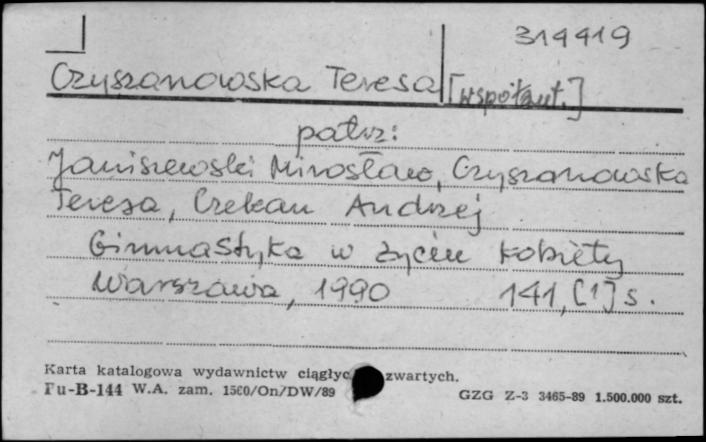 314419
Czyszanowska Teresa [współaut.]
patrz:
Janiszewski Mirosław, Czyszanowska
Teresa, Czekan Andrzej
Gimnastyka w życiu kobiety
Warszawa, 1990 141, [1] s.
Karta katalogowa wydawnictw ciągłyc zwartych.
Pu-B-144 W.A. zam. 1560/On/DW/89 GZG Z-3 3465-89 1.500.000 szt.